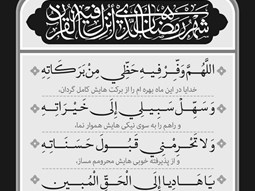 شهر رمضان الذي انزل فيه القرآن
اللّٰهُمَّ وَفِّرْ فيهِ حَظّي مِنْ بَرَكاتِهِ
خدایا در این ماه بهره ام را از برکت هایش کامل گردان،
وَ سَهِّلْ سَبيلي إِلىٰ خَيْراتِهِ
و راهم را به سوی نیکی هایش هموار نما،
وَ لا تَحْرِمْني قَبُولَ حَسَناتِهِ
و از پذیرفته خوبی هایش محرومم مساز،
يا هادِياً إِلَى الْحَقِّ الْمُبينِ